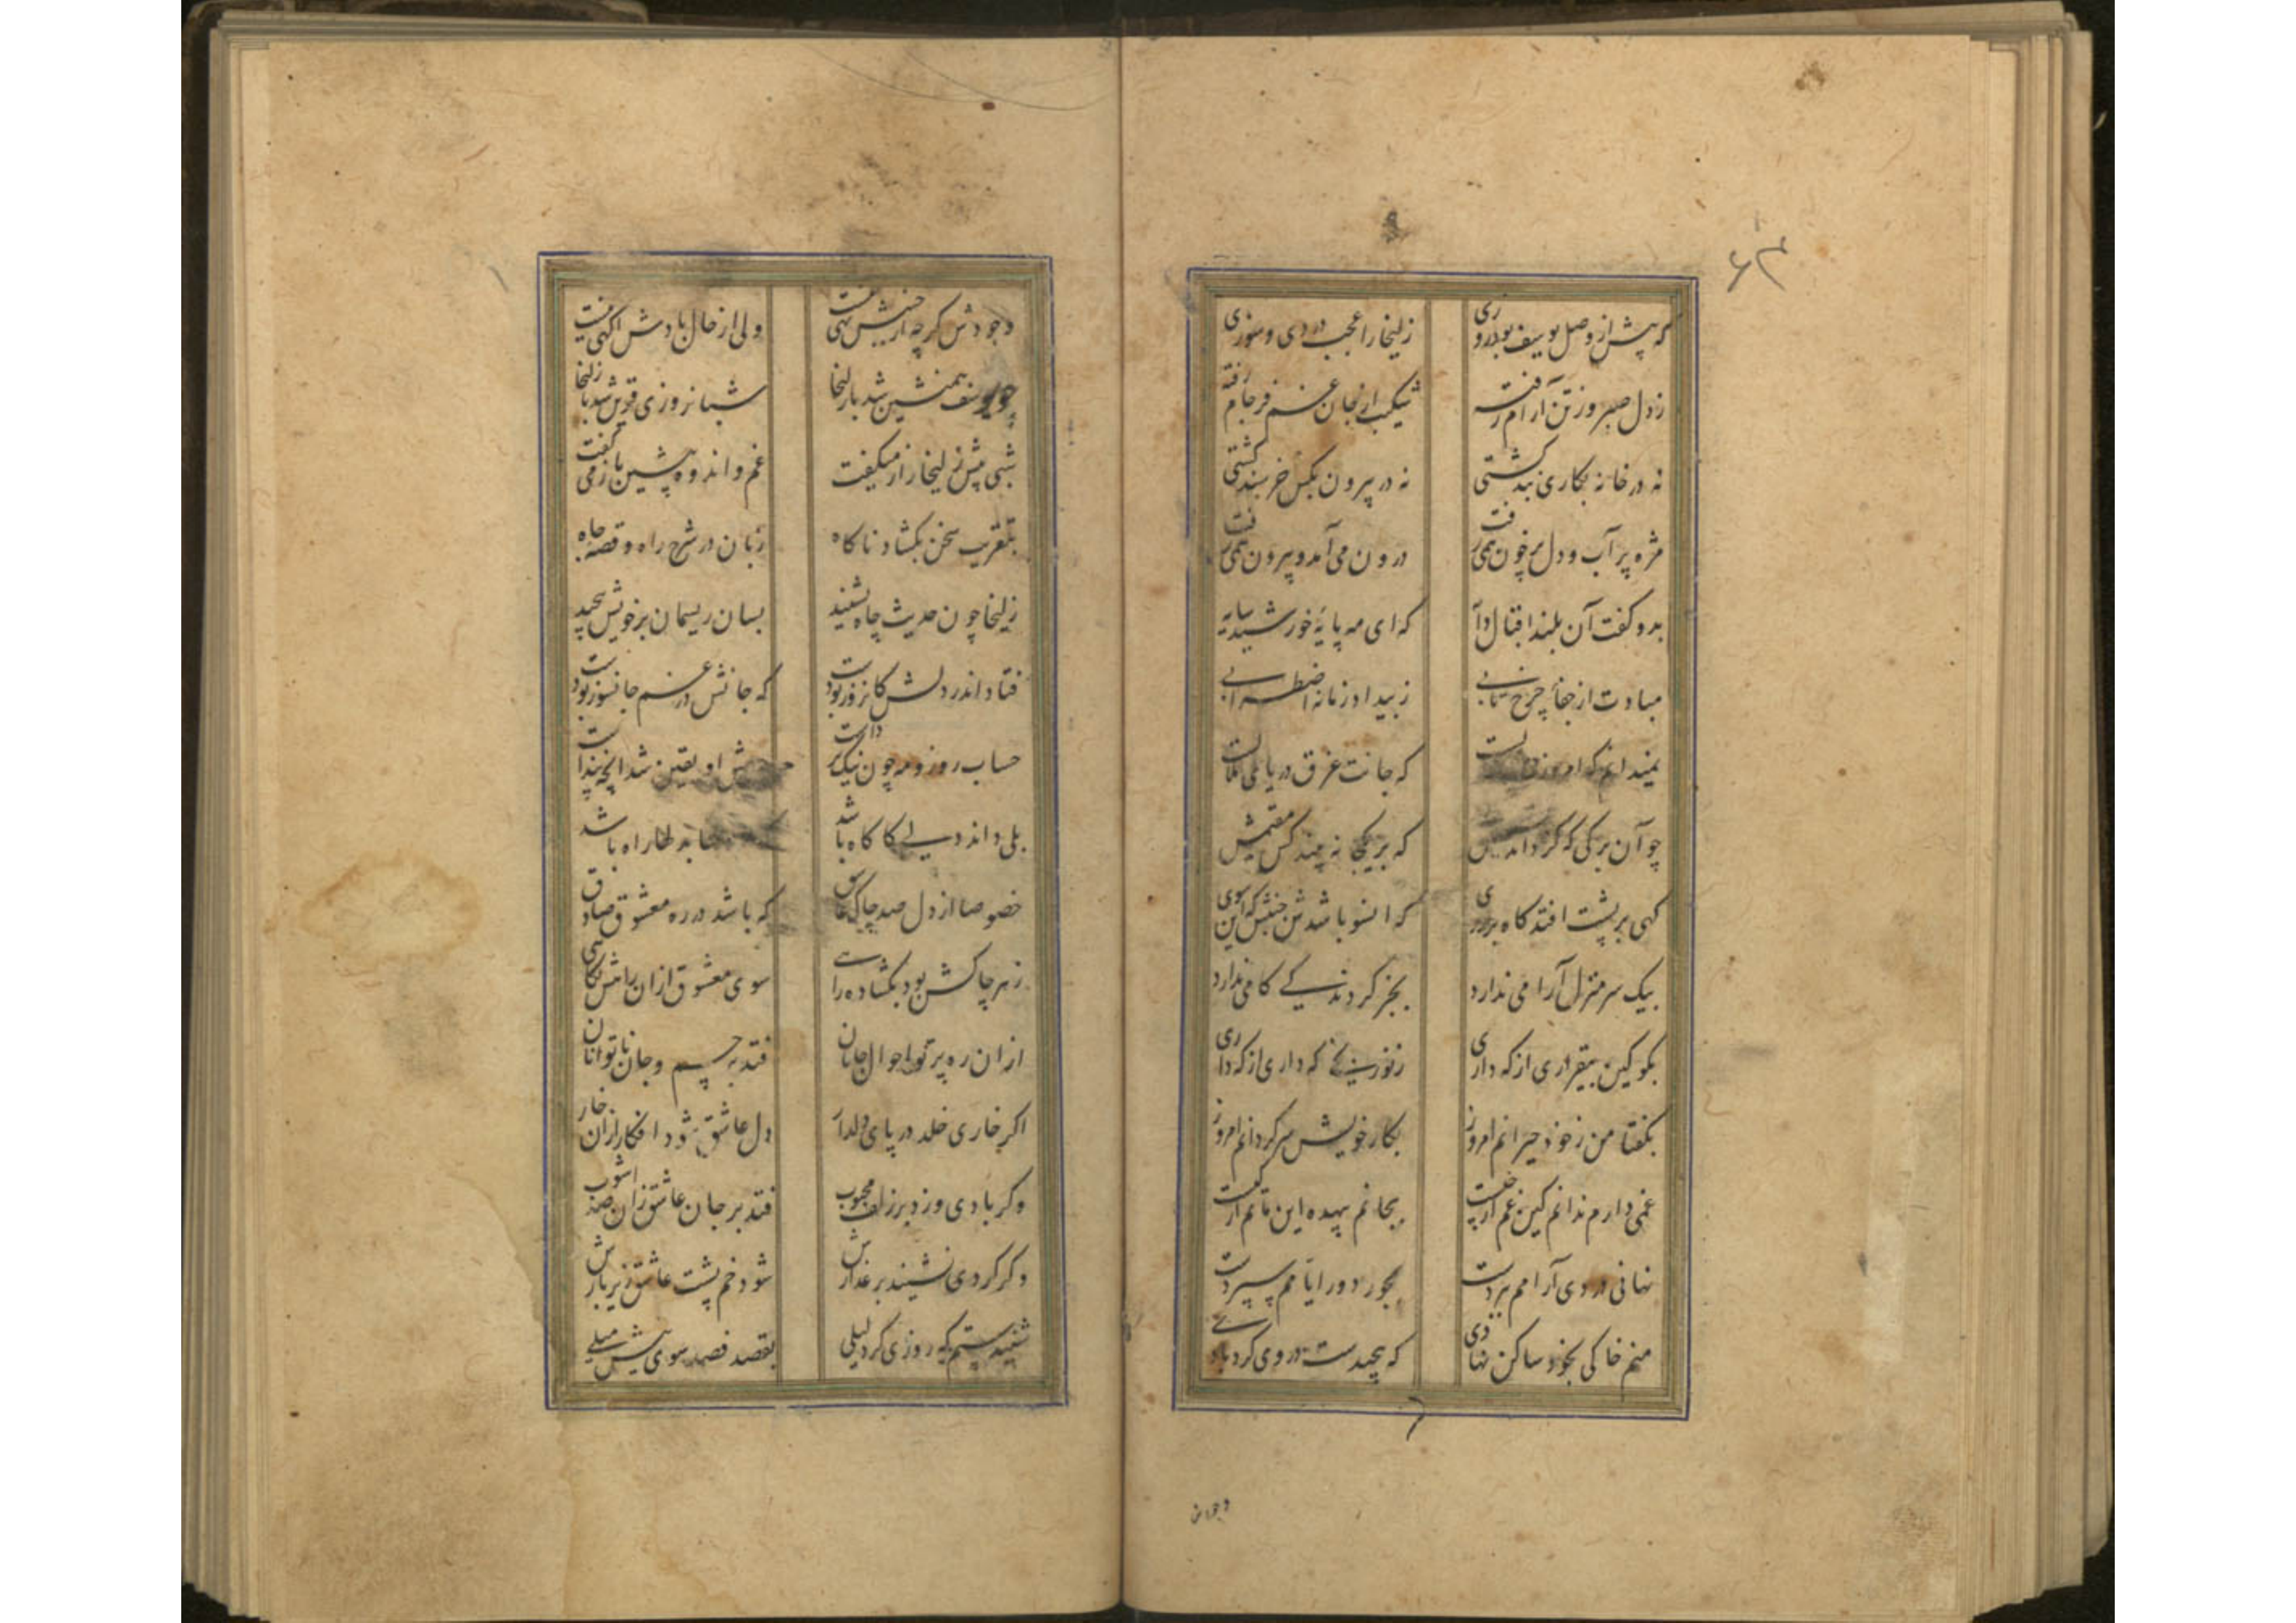 ۶۳
که پیش از وصل یوسف بود روزی زلیخا را عجب دردی و سوزی
ز دل صبر و ز تن آرام رفته شکیب از جان غم فرجام رفته
نه در خانه بکاری بند کشتی نه در بیرون بکس خرسند کشتی
مژه پر آب و دل پر خون همی رفت درون می آمد و بیرون همی رفت
بدو کفت آن بلند اقبال دایه که ای مه پایهٔ خورشید سایه
مبادت از جفای چرخ تابی ز بیداد زمانه اضطرابی
نمیدانم که امروزت که جانت غرق دریای بلاست
چو آن برکی که کرداند که بر یکجا نه بیند کس مقیمش
کهی بر پشت افتد کاه بر روی که اینسو باشدش جنبش که این سوی
بیک سر منزل آرامی ندارد بجز کردندکی کامی ندارد
بکو کین بیقراری از که داری ز نو رنجی که داری از که داری
بکفتا من ز خود حیرانم امروز بکار خویش سر کردانم امروز
غمی دارم ندانم کین غم از چیست بجانم بیهده این ماتم از کیست
نهانی دردی آرامم ببردست بجور دور ایامم سپردست
منم خاکی بخود ساکن نهادی که پیچیدست در وی کردبادی
وجودش
وجودش کرچه از جنبش تهی نیست ولی از حال بادش اکهی نیست
چو یوسف همنشین شد با زلیخا شبانروزی قرین شد با زلیخا
شبی پیش زلیخا راز میکفت غم و اندوه پیشین باز می کفت
بتقریب سخن بکشاد ناکاه زبان در شرح راه و قصه چاه
زلیخا چون حدیث چاه بشنید بسان ریسمان بر خویش پیچید
فتاد اندر دلش کان روز بودست که جانش در غم جانسوز بودست
حساب روز و مه چون نیک برداشت او یقین شد انچه پنداشت
بلی داند دلی کاکاه باشد که راه باشد
خصوصا از دل صد چاک عاشق که باشد در ره معشوق صادق
ز هر چاکش بود بکشاده راهی سوی معشوق ازان راهش نکاهی
ازان ره پرتو احوال جانان فتد بر چشم و جان ناتوانان
اکر خاری خلد در پای دلدار دل عاشق شود افکار ازان خار
وکر بادی وزد بر زلف محبوب فتد بر جان عاشق زان صد آشوب
وکر کردی نشیند بر عذارش شود خم پشت عاشق زیر بارش
شنیدستم که روزی کرد لیلی بقصد فصد سوی نیش میلی